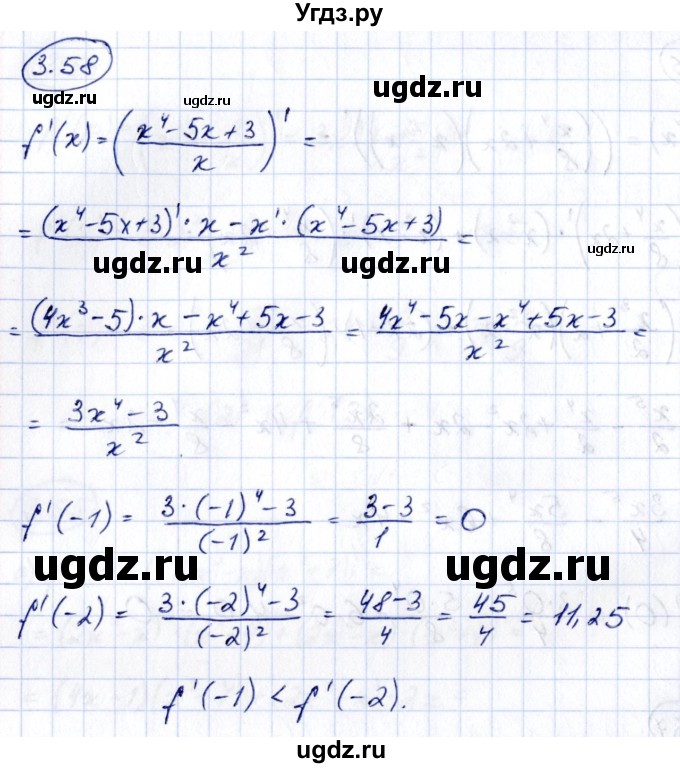 Угдз.ру
3.58
ugdz.ru
ugdz.ru
ugdz.ru
f'(x) = ((x⁴-5x+3)/x)' =
= ((x⁴-5x+3)'·x - x'·(x⁴-5x+3))/x² =
ugdz.ru
ugdz.ru
ugdz.ru
= ((4x³-5)·x - x⁴+5x-3)/x² = (4x⁴-5x-x⁴+5x-3)/x² =
= (3x⁴-3)/x².
f'(-1) = (3·(-1)⁴-3)/(-1)² = (3-3)/1 = 0
ugdz.ru
ugdz.ru
f'(-2) = (3·(-2)⁴-3)/(-2)² = (48-3)/4 = 45/4 = 11,25
f'(-1) < f'(-2).
ugdz.ru